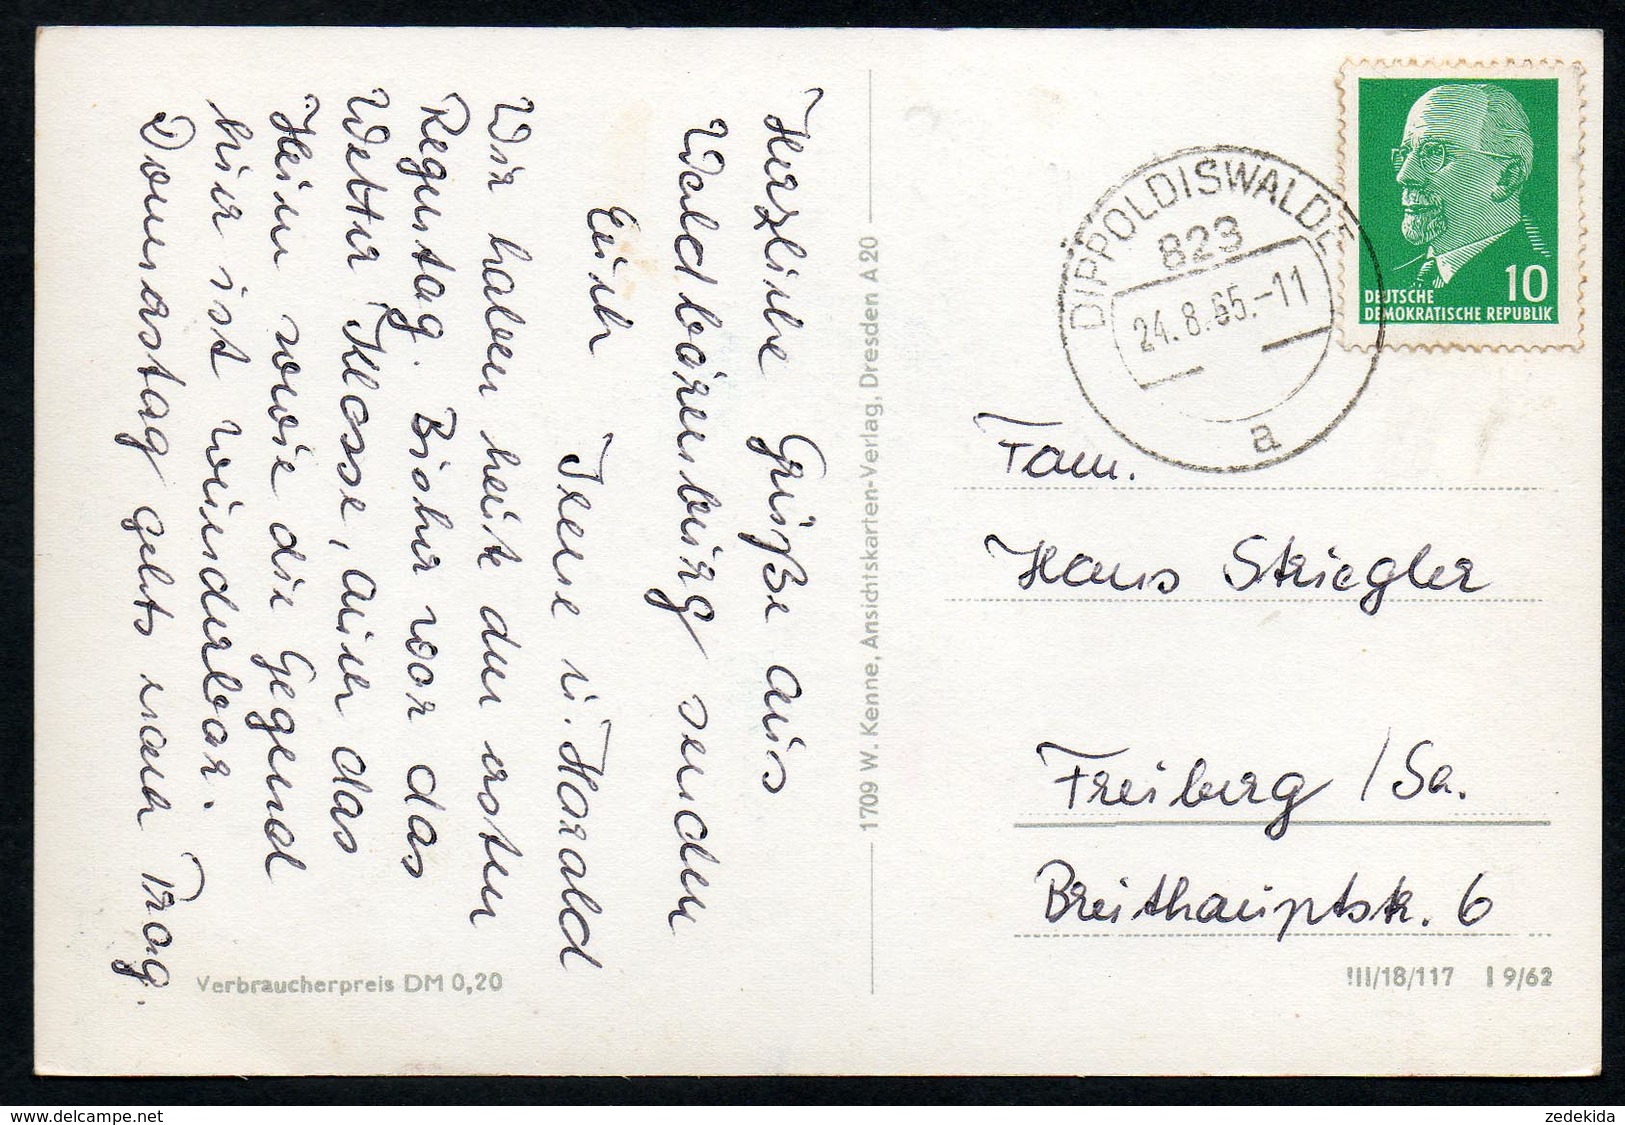 Herzliche Grüße aus
Waldbärenburg senden
Euch
Irene u. Harald
Wir haben heute den ersten
Regentag. Bisher war das
Wetter Klasse, auch das
Heim sowie die Gegend
hier ist wunderbar.
Donnerstag gehts nach Prag.
Verbraucherpreis DM 0,20
1709 W. Kenne, Ansichtskarten-Verlag, Dresden A 20
DIPPOLDISWALDE
823
24.8.65.-11
a
10
DEUTSCHE
DEMOKRATISCHE REPUBLIK
Fam.
Hans Striegler
Freiberg / Sa.
Breithauptstr. 6
III/18/117 I 9/62
zedekida
delcampe.net